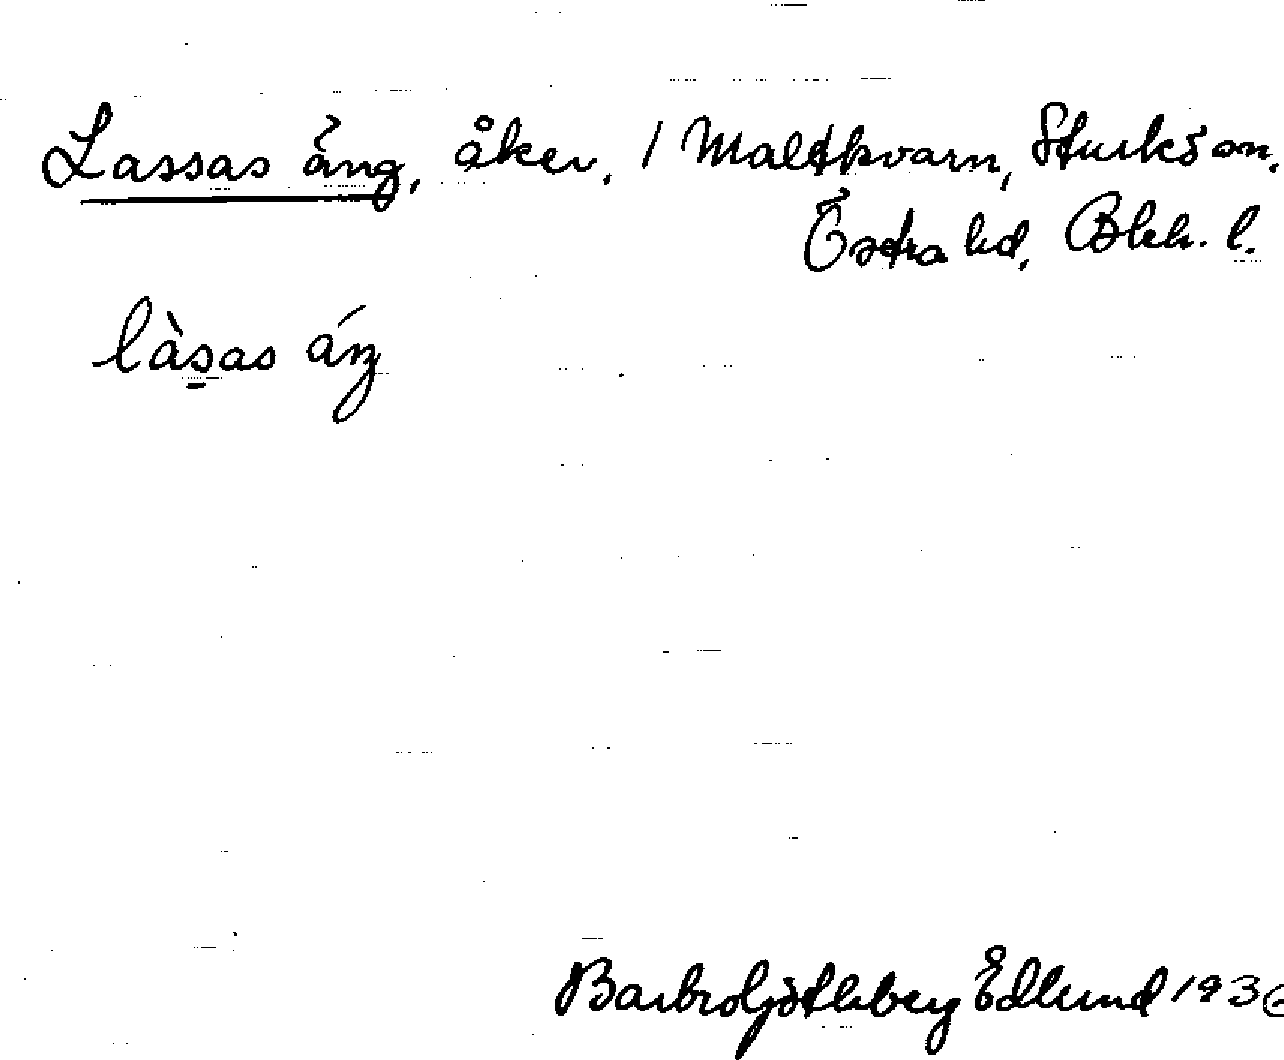 Lassas äng, åker, / Maltkvarn, Sturkö sn.
Östra hd, Blek. l.
làsas áŋ
Barbro Götleberg Edlund 193